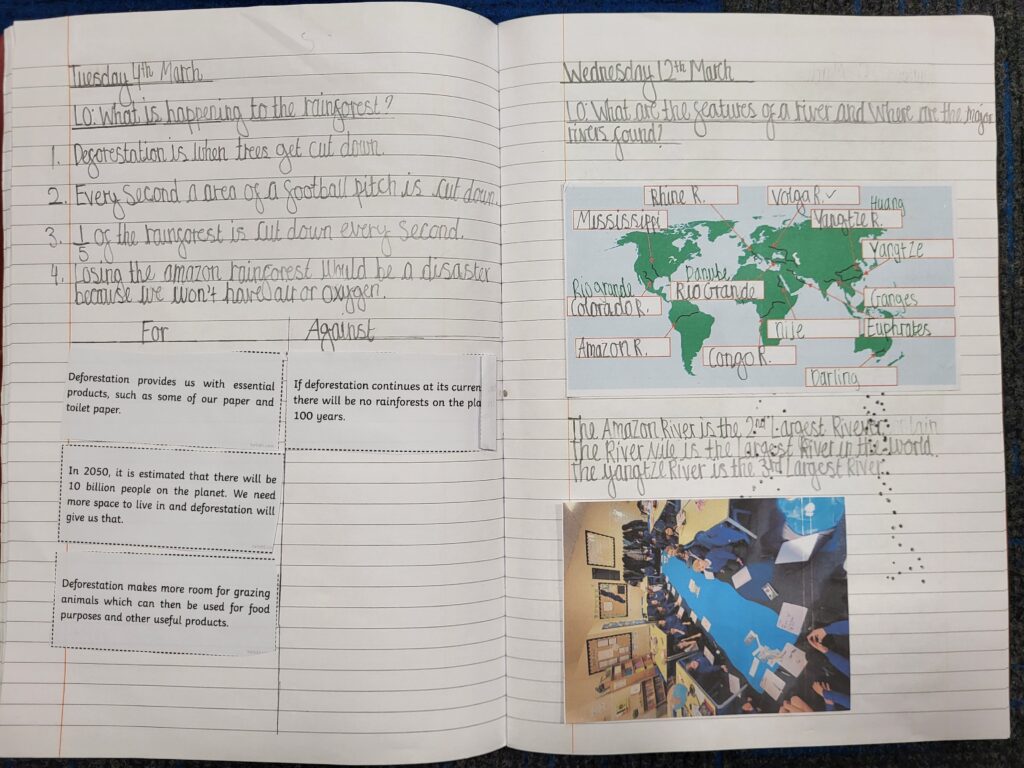 Tuesday 4th March
LO: What is happening to the rainforest?
1. Deforestation is when trees get cut down.
2. Every second a area of a football pitch is cut down.
3. 1/5 of the rainforest is cut down every second.
4. Losing the amazon rainforest would be a disaster
because we won't have air or oxygen.
For
Against
Deforestation provides us with essential
products, such as some of our paper and
toilet paper.
In 2050, it is estimated that there will be
10 billion people on the planet. We need
more space to live in and deforestation will
give us that.
Deforestation makes more room for grazing
animals which can then be used for food
purposes and other useful products.
If deforestation continues at its curren
there will be no rainforests on the pla
100 years.
Wednesday 12th March
LO: What are the features of a river and where are the major
rivers found?
Rhine R.
Volga R. ✓
Huang
Mississippi
Yangtze R.
Yangtze
Danube
Rio grande
Rio Grande
Colorado R.
Ganges
Nile
Euphrates
Amazon R.
Congo R.
Darling
The Amazon River is the 2nd Largest River
The River Nile is the Largest River in the world.
The Yangtze River is the 3rd Largest River.